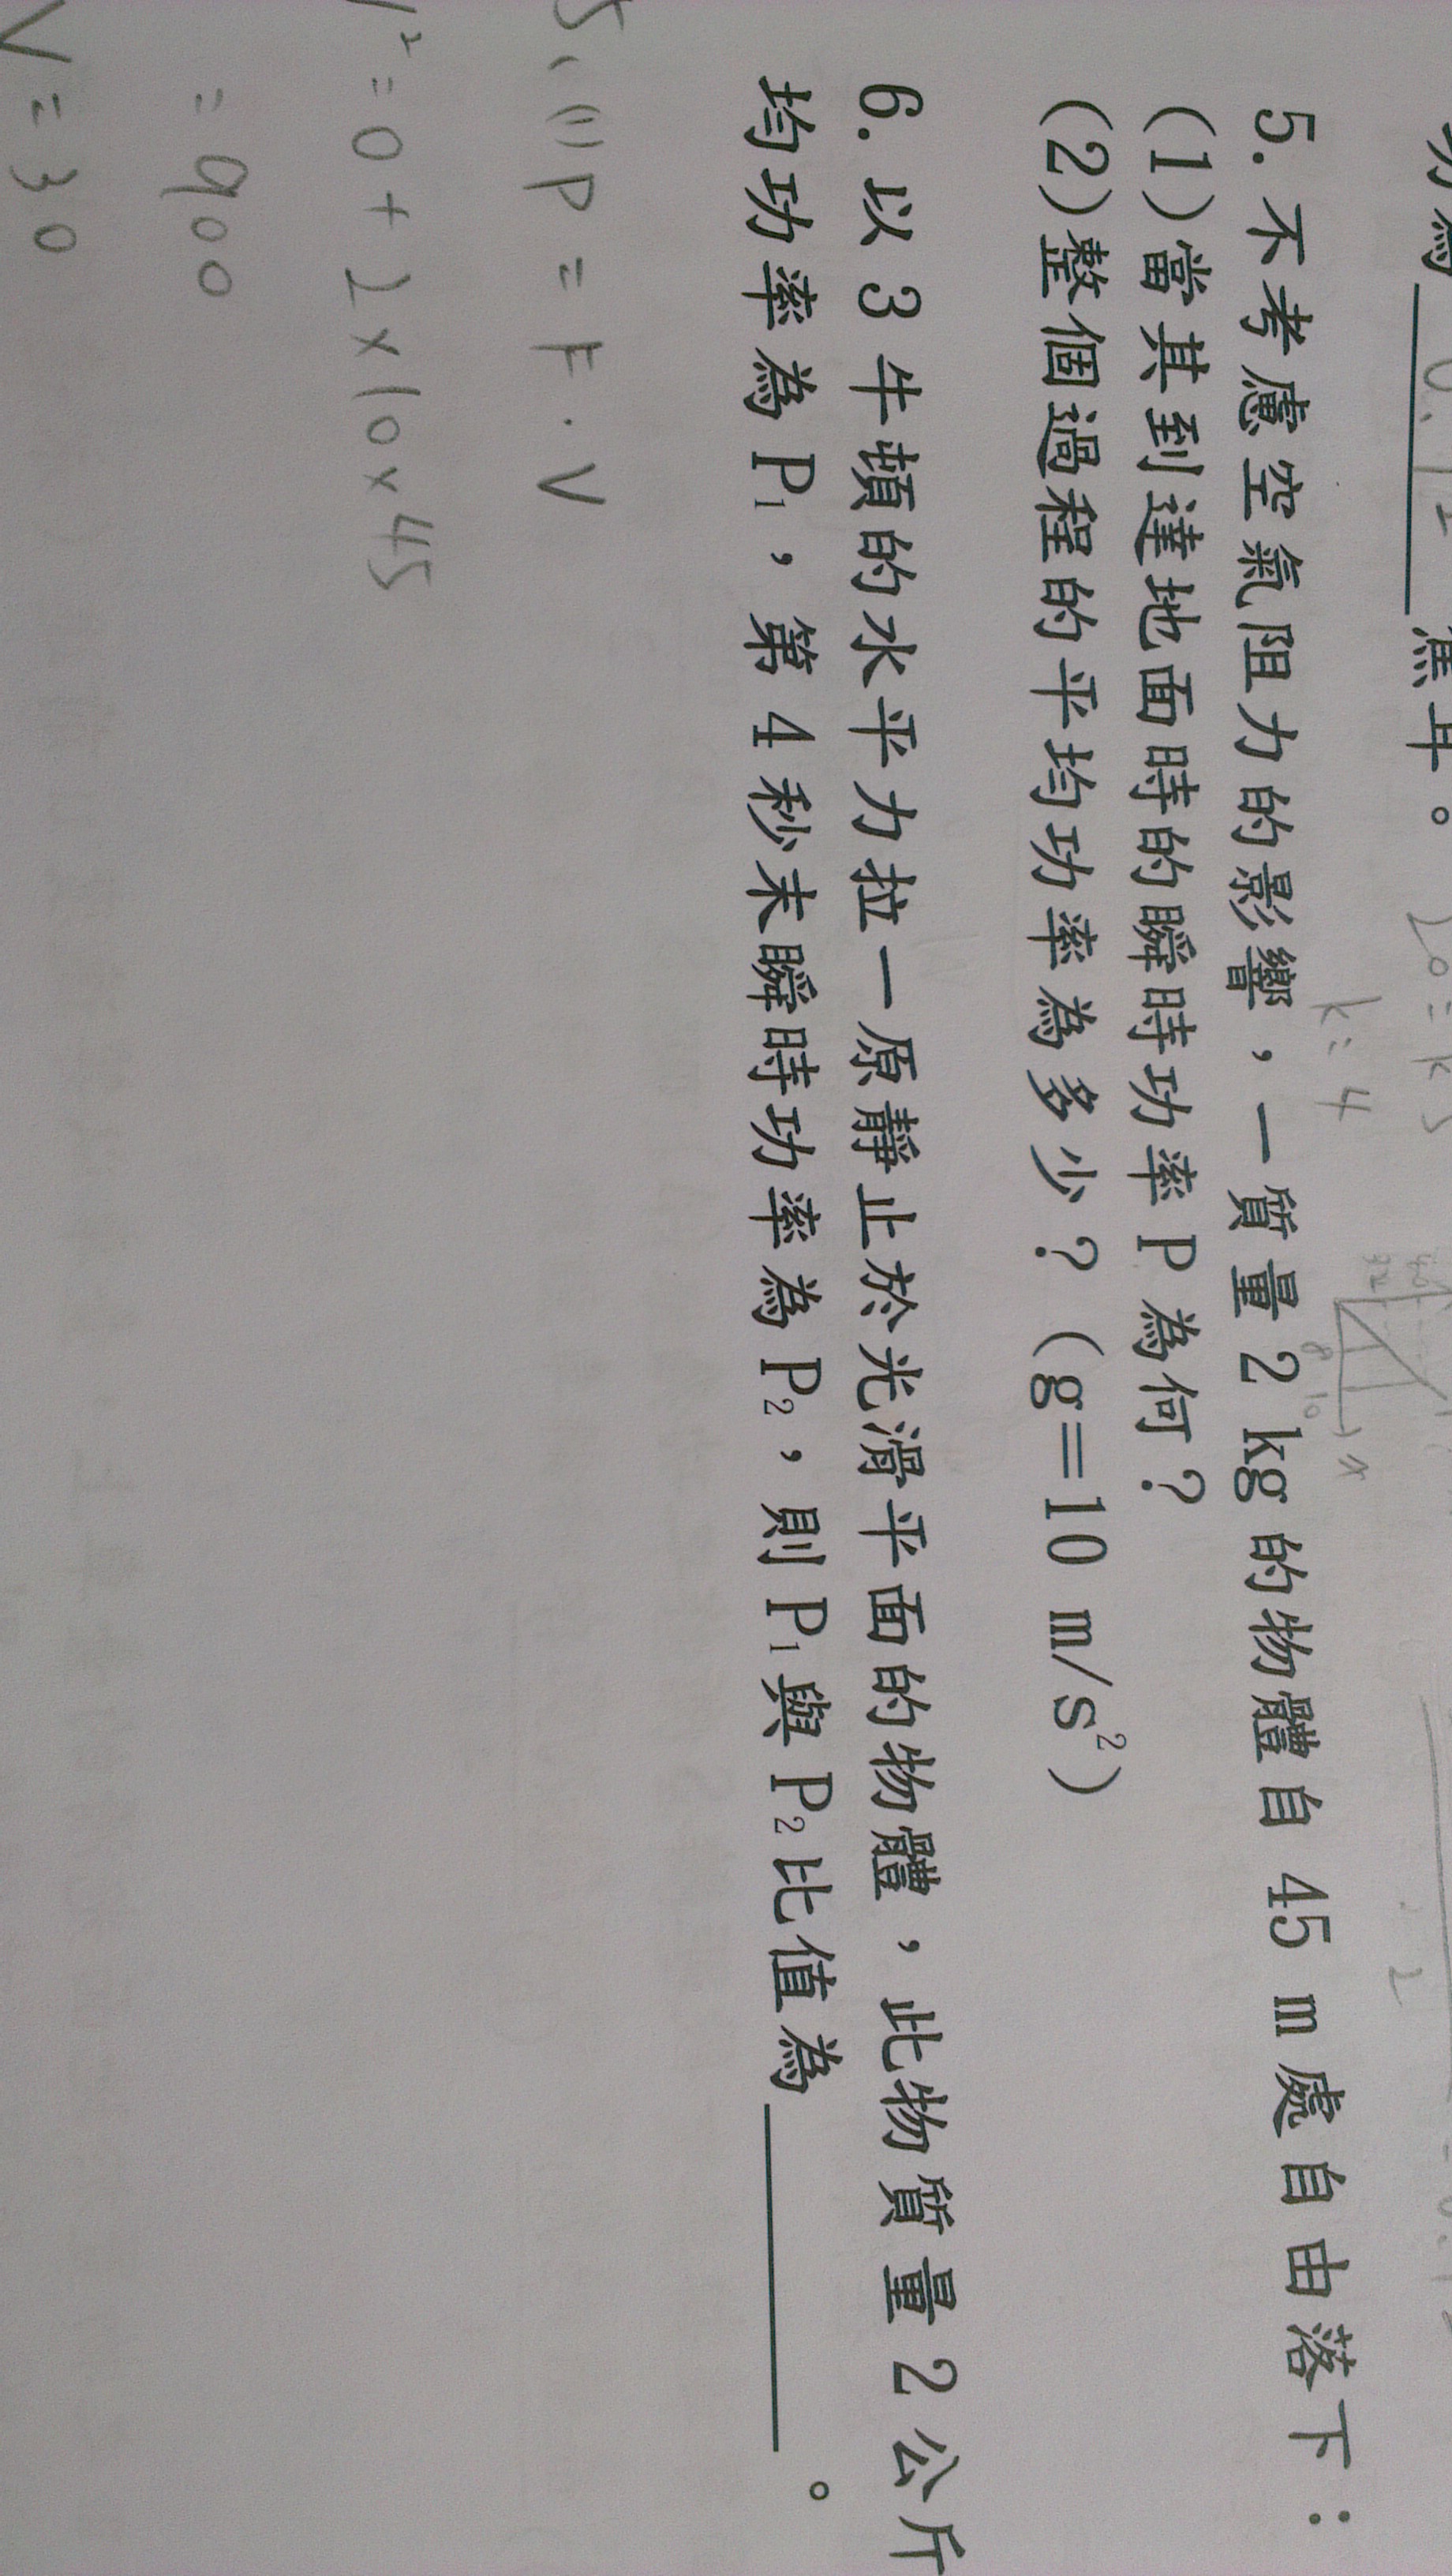 焦耳。
20=k5
k=4
5.不考慮空氣阻力的影響，一質量2 kg的物體自 45 m處自由落下：
(1)當其到達地面時的瞬時功率P為何？
(2)整個過程的平均功率為多少？(g=10 m/s²)
6.以3牛頓的水平力拉一原靜止於光滑平面的物體，此物質量2公斤
均功率為P₁，第4秒末瞬時功率為P₂，則P₁與P₂比值為 。
5、(1)P=F·V
V²=0+2×10×45
=900
V=30